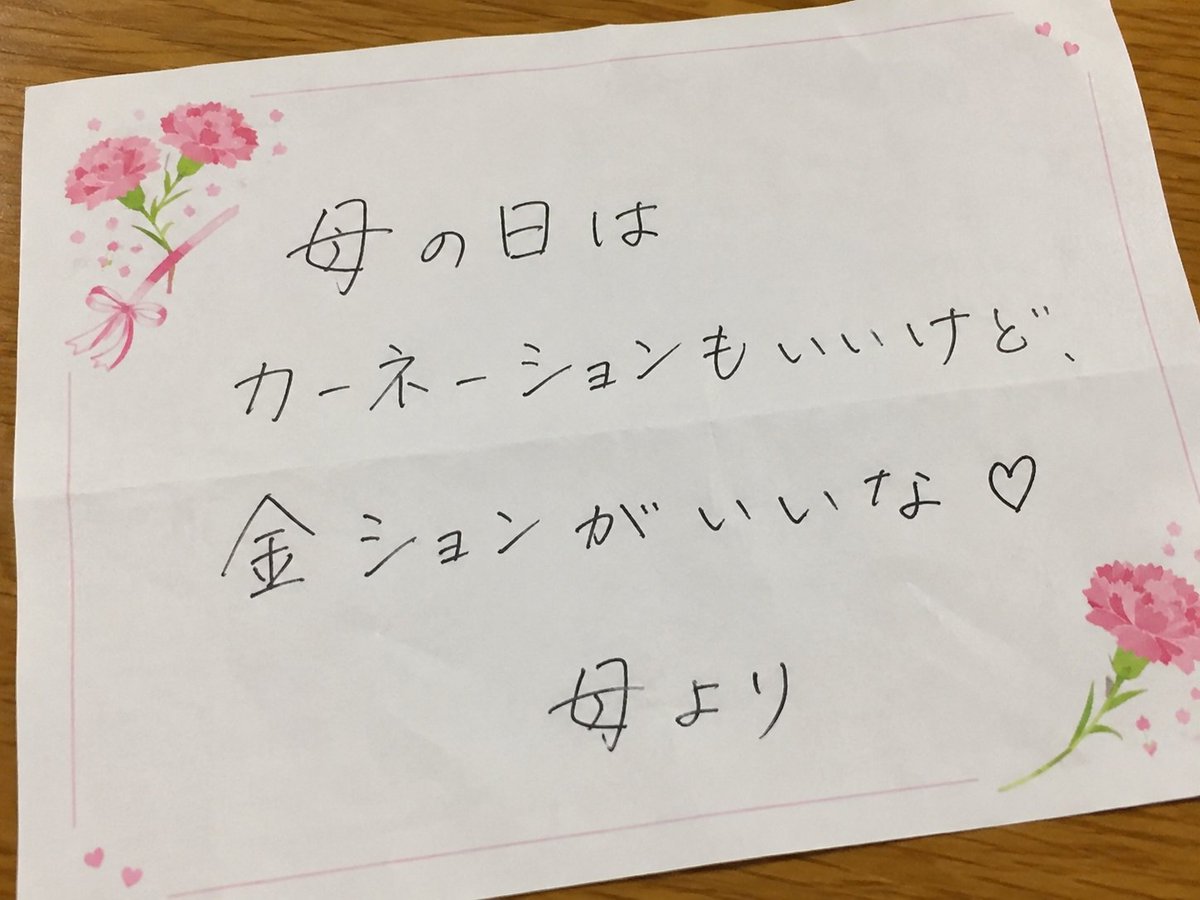 母の日は
カーネーションもいいけど、
金ションがいいな♡
母より